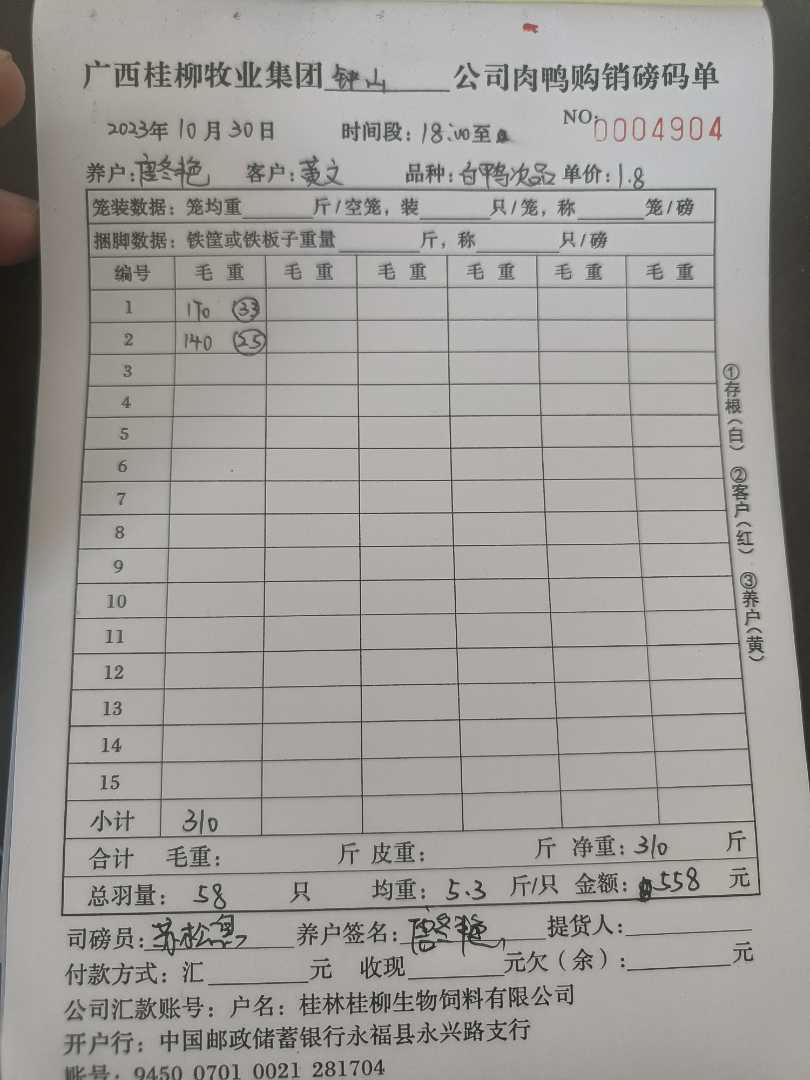 广西桂柳牧业集团钟山公司肉鸭购销磅码单
2023年10月30日 时间段:18:00至 NO:0004904
养户:唐冬艳 客户:黄文 品种:白鸭次品 单价:1.8
笼装数据:笼均重 斤/空笼,装 只/笼,称 笼/磅
捆脚数据:铁筐或铁板子重量 斤,称 只/磅
编号 毛重 毛重 毛重 毛重 毛重 毛重
1 170 33
2 140 25
3
4
5
6
7
8
9
10
11
12
13
14
15
小计 310
合计 毛重: 斤 皮重: 斤 净重:310 斤
总羽量:58 只 均重:5.3 斤/只 金额:558 元
司磅员:苏松 养户签名:唐冬艳 提货人:
付款方式:汇 元 收现 元欠(余): 元
公司汇款账号:户名:桂林桂柳生物饲料有限公司
开户行:中国邮政储蓄银行永福县永兴路支行
账号:9450 0701 0021 281704
①存根(白) ②客户(红) ③养户(黄)